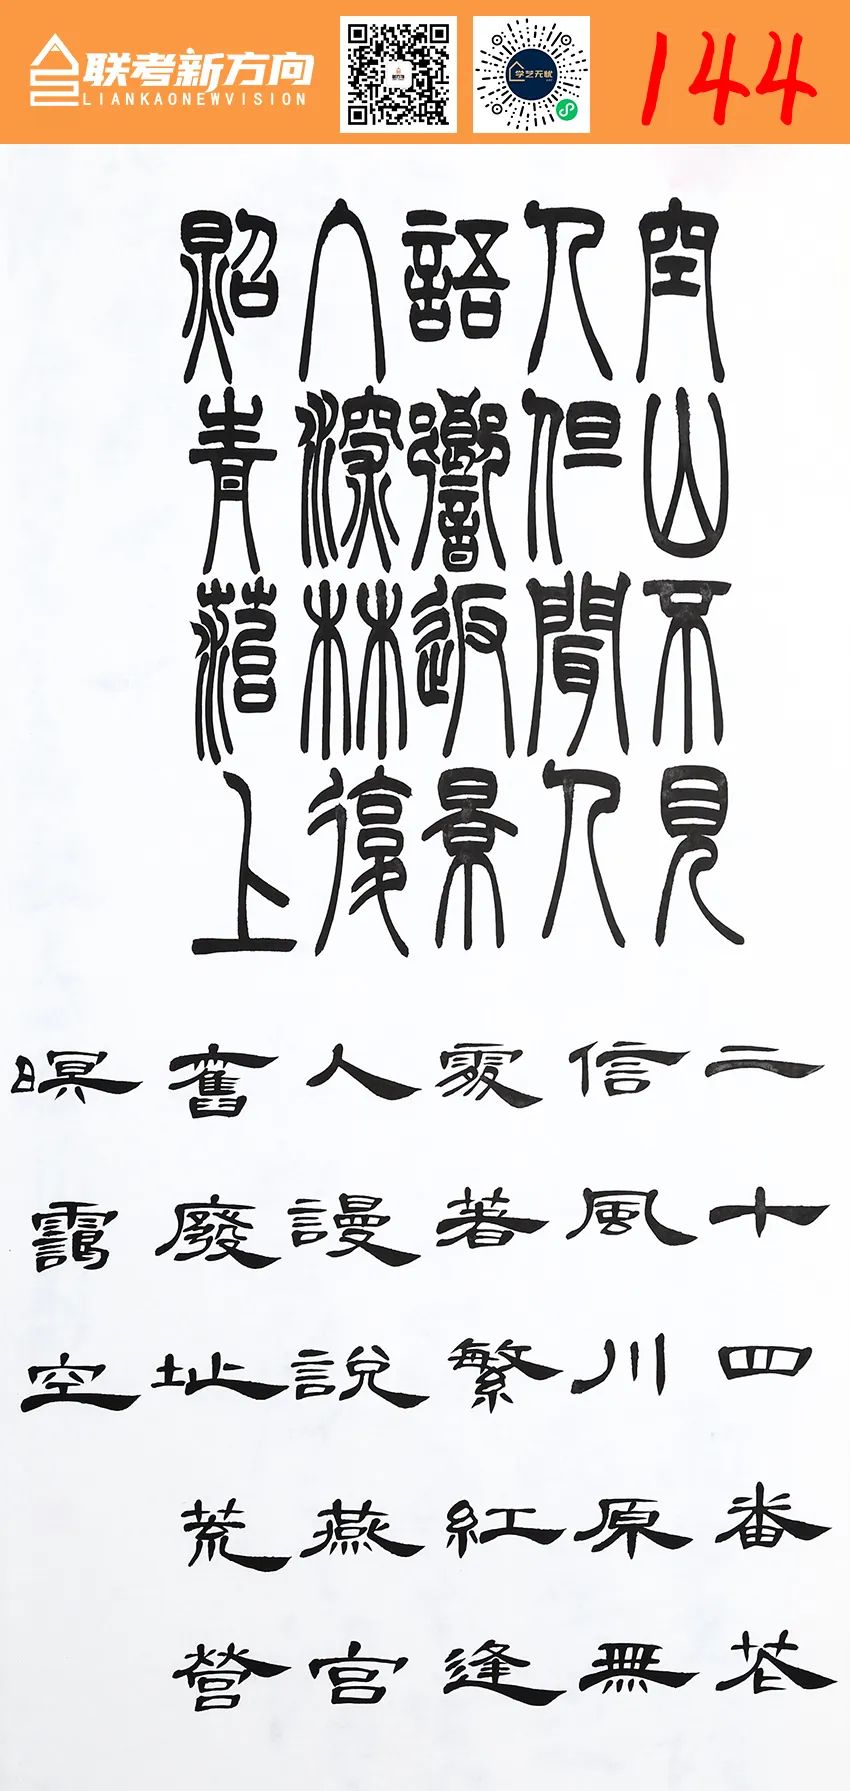 联考新方向
LIANKAONEWVISION
学艺无忧
144
空山不見
人但聞人
語響返景
入深林復
照青菭上
二十四番花
信風川原無
處著繁紅逢
人謾說燕宮
舊廢址荒營
暝靄空